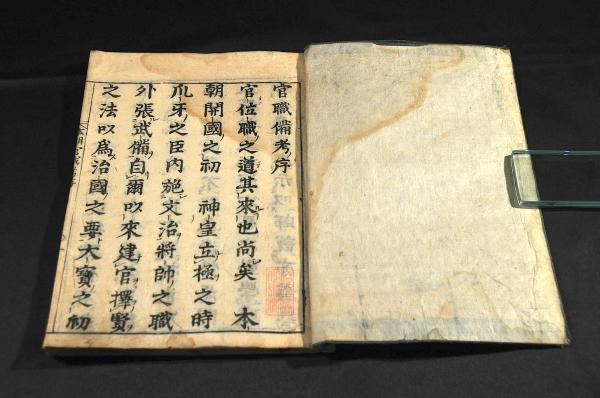 官職備考序
官位職之道其來也尚矣 本
朝開國之初 神皇立極之時
爪牙之臣內施文治將帥之職
外張武備自爾以來建官擇賢
之法以為治國之要大寶之初